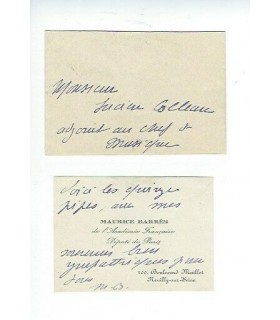 Monsieur
Lucien Colleau
adjoint au chef de
musique
Voici les quinze
pipes, avec mes
MAURICE BARRÈS
de l'Académie Française
Député de Paris
souvenirs bien
sympathiques pour
tous
100, Boulevard Maillot
Neuilly-sur-Seine
M. B.